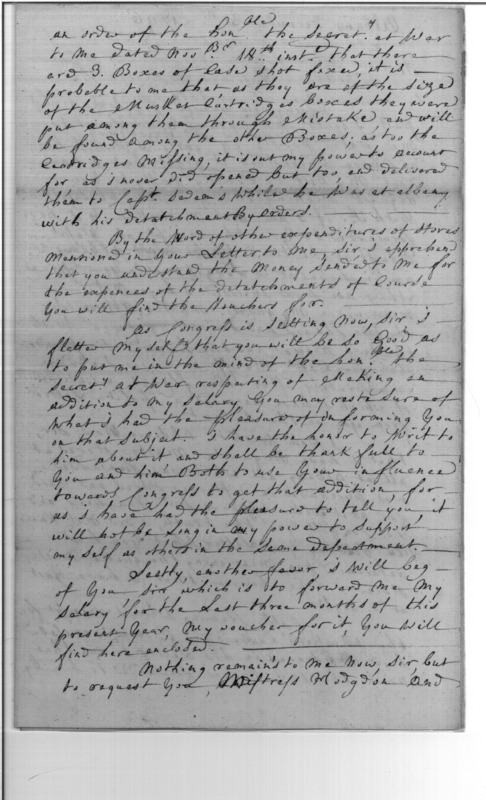 an order of the hon.ble the Secret.y at War
to me dated Nov.Br 18th inst.t that there
are 3. Boxes of Case Shot fixed, it is
probable to me that as they are of the size
of the Musket Cartridges boxes they were
put among them through Mistake and will
be found among the other Boxes, as too the
Cartridges Missing, it is out my power to account
for as i never did opened but two, and delivered
them to Capt. Sedam whiled he was at albany
with his detatchment By orders.
By the Word of other expenditures of Stores
Mentioned in Your Letter to Me, Sir, i apprehend
that you understand the Money Sended to Me for
the expences of the detatchments of Course
You will find the Vouchers for.
As Congress is Setting Now, Sir i
flatter My Self that you will be so Good as
to put me in the mind of the hon.ble the
Secret.y at War respecting of Making an
addition to my Salary You may rest Sure of
What i had the pleasure of informing You
on that Subject. I have the honor to Writ to
him about it and Shall be thank full to
You and him Both to use Your influence
towards Congress to get that addition, for
as i have had the pleasure to tell you, it
will not be Long in my power to Support
my Self as others in the Same department.
Lastly, another favor i will beg
of You Sir which is to forward Me My
Salary for the Last three months of this
present Year, My voucher for it, You Will
find here enclosed.
Nothing remain's to me Now, Sir, but
to request You, Mistress Hodgdon and